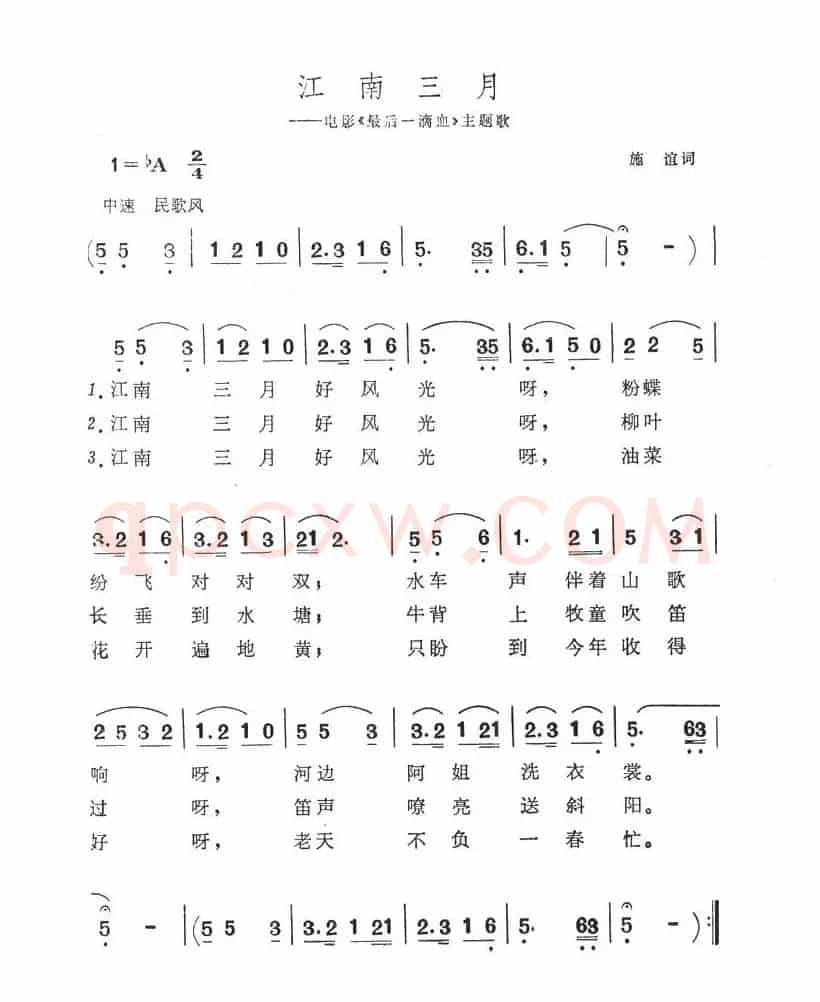 江南三月
——电影《最后一滴血》主题歌
1=♭A 2/4
施谊词
中速 民歌风
(5 5 3 | 1 2 1 0 | 2.3 1 6 | 5. 35 | 6.1 5 | 5 - ) |
5 5 3 | 1 2 1 0 | 2.3 1 6 | 5. 35 | 6.1 5 0 | 2 2 5 |
1.江南 三月好风光 呀，粉蝶
2.江南 三月好风光 呀，柳叶
3.江南 三月好风光 呀，油菜
qpcxw.com
3.2 1 6 | 3.2 1 3 | 21 2. | 5 5 6 | 1. 21 | 5 31 |
纷飞对对双；水车声伴着山歌
长垂到水塘；牛背上牧童吹笛
花开遍地黄；只盼到今年收得
2 5 3 2 | 1.2 1 0 | 5 5 3 | 3.2 1 21 | 2.3 1 6 | 5. 63 |
响呀，河边阿姐洗衣裳。
过呀，笛声嘹亮送斜阳。
好呀，老天不负一春忙。
5 - | (5 5 3 | 3.2 1 21 | 2.3 1 6 | 5. 63 | 5 - ) :‖